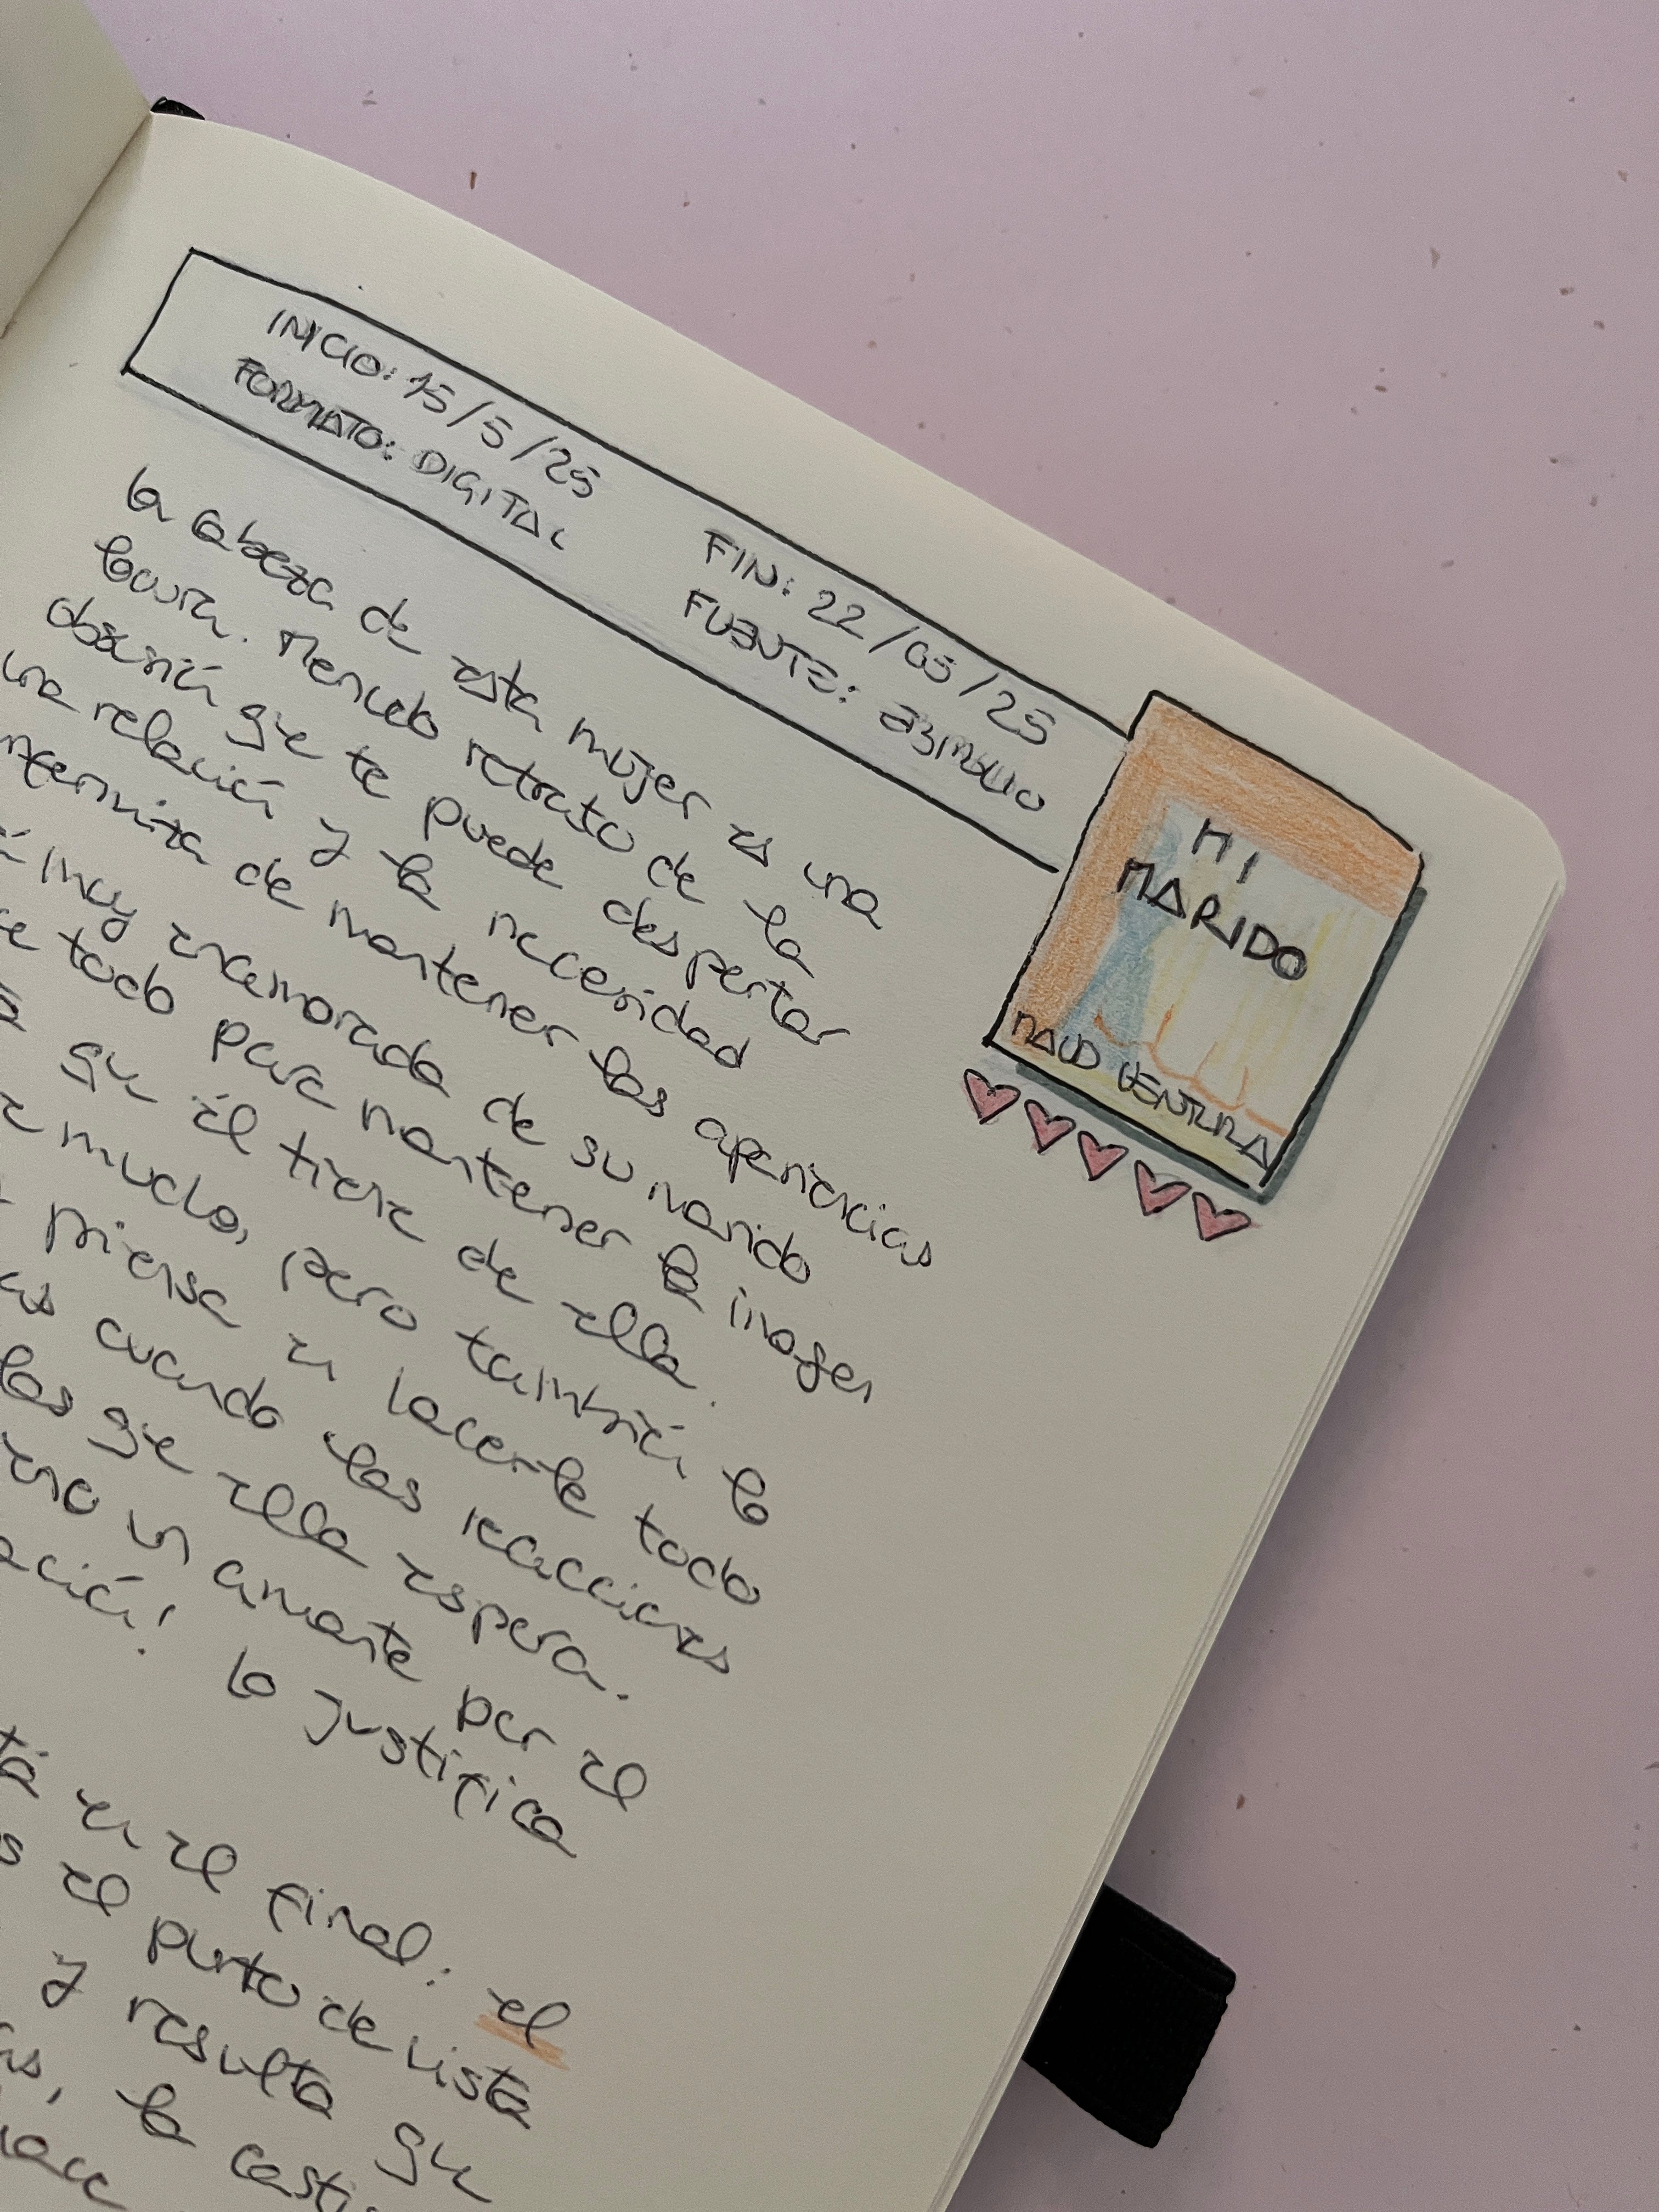 INICIO: 15/5/25 FIN: 22/05/25
FORMATO: DIGITAL FUENTE: EBIBLIO
MI
MARIDO
MAUD VENTURA
la cabeza de esta mujer es una
locura. Menudo retrato de la
obsesión que te puede despertar
una relación y la necesidad
enfermiza de mantener las apariencias
muy enamorada de su marido
todo para mantener la imagen
que él tiene de ella.
mucho, pero también lo
piensa en hacerle todo
cuando las reacciones
las que ella espera.
un amante por el
lo justifica
en el final: el
el punto de vista
y resulta que
la